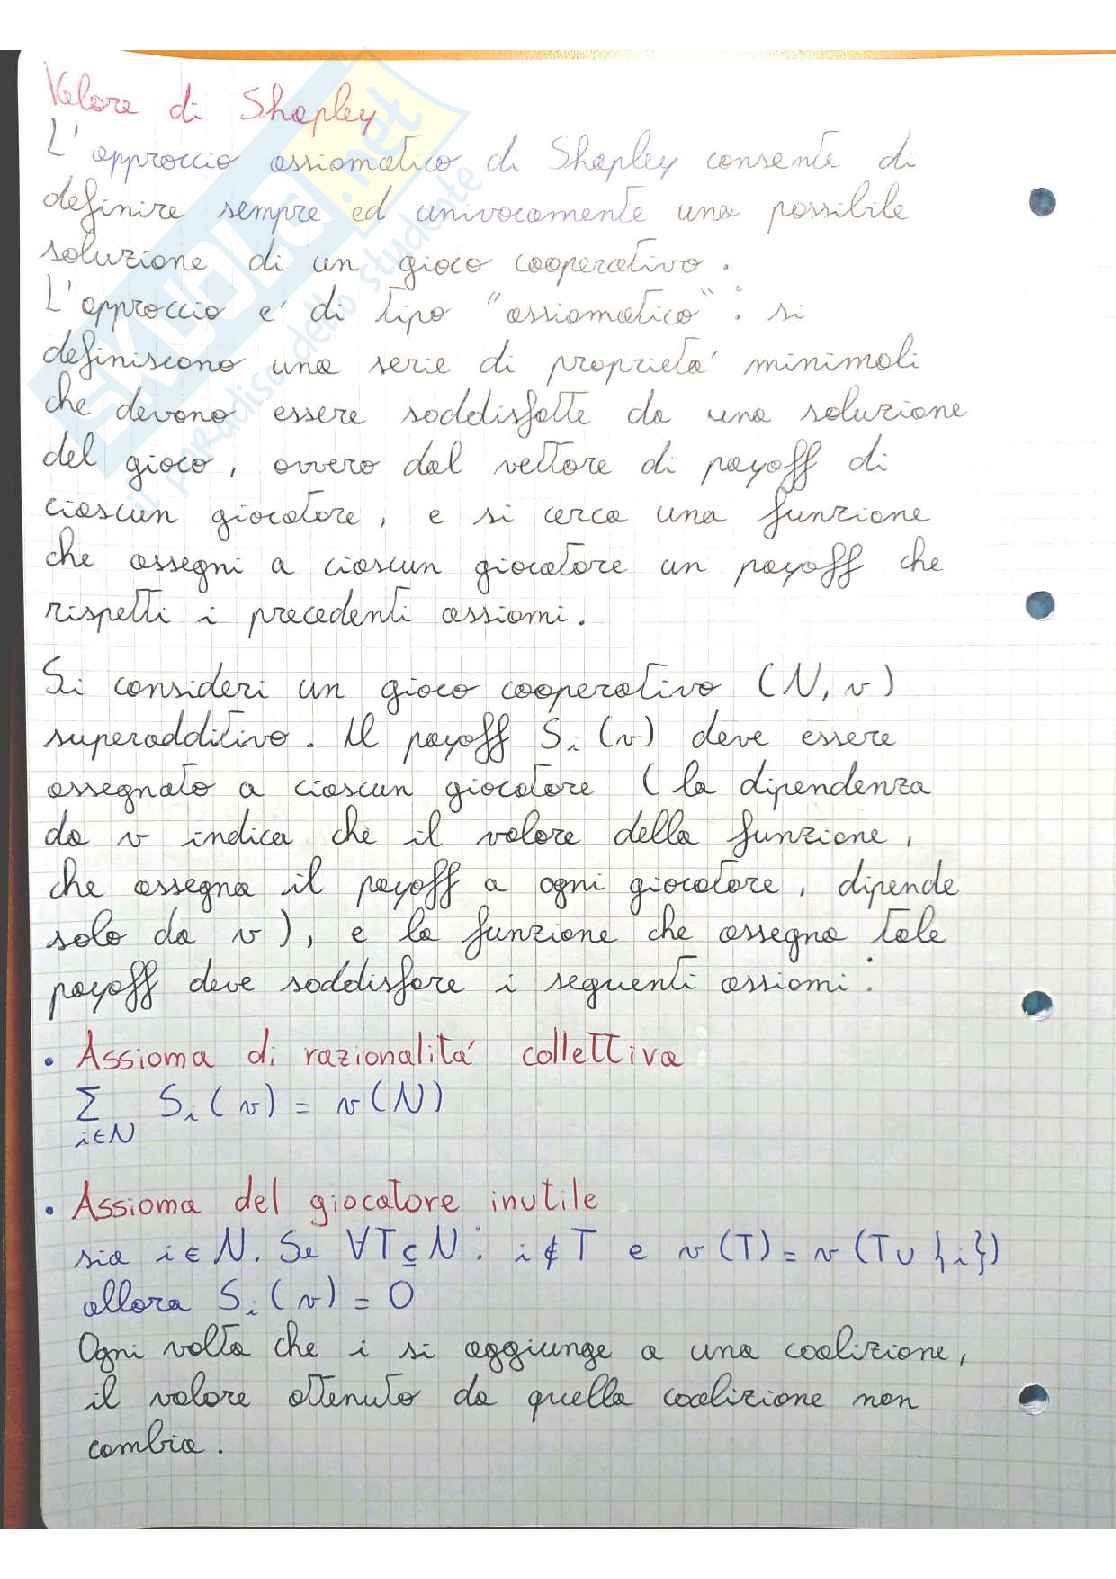 Valore di Shapley
L'approccio assiomatico di Shapley consente di
definire sempre ed univocamente una possibile
soluzione di un gioco cooperativo.
L'approccio e' di tipo "assiomatico": si
definiscono una serie di proprieta' minimali
che devono essere soddisfatte da una soluzione
del gioco, ovvero dal vettore di payoff di
ciascun giocatore, e si cerca una funzione
che assegni a ciascun giocatore un payoff che
rispetti i precedenti assiomi.
Si consideri un gioco cooperativo (N, v)
superadditivo. Il payoff Sᵢ(v) deve essere
assegnato a ciascun giocatore (la dipendenza
da v indica che il valore della funzione,
che assegna il payoff a ogni giocatore, dipende
solo da v), e la funzione che assegna tale
payoff deve soddisfare i seguenti assiomi:
• Assioma di razionalita' collettiva
∑ Sᵢ(v) = v(N)
i∈N
• Assioma del giocatore inutile
sia i∈N. Se ∀T⊆N: i∉T e v(T) = v(T∪{i})
allora Sᵢ(v) = 0
Ogni volta che i si aggiunge a una coalizione,
il valore ottenuto da quella coalizione non
cambia.
SKUOLA.net
il paradiso dello studente